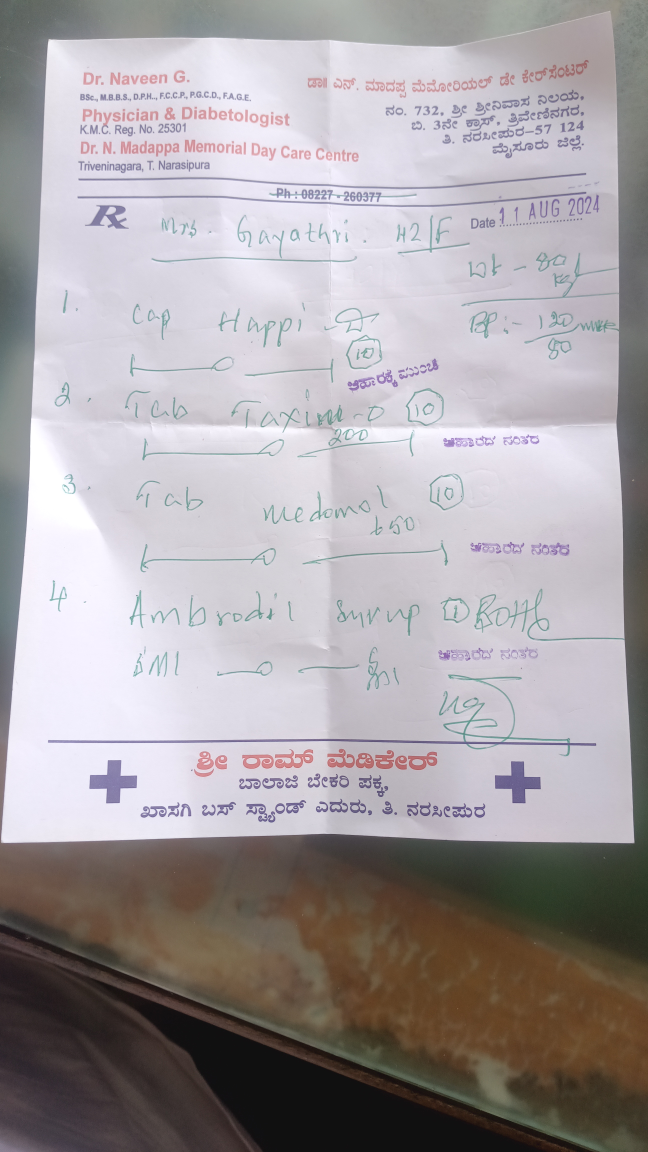 Dr. Naveen G.
BSc., M.B.B.S., D.P.H., F.C.C.P., P.G.C.D., F.A.G.E.
Physician & Diabetologist
K.M.C. Reg. No. 25301
Dr. N. Madappa Memorial Day Care Centre
Triveninagara, T. Narasipura
ಡಾ॥ ಎನ್. ಮಾದಪ್ಪ ಮೆಮೋರಿಯಲ್ ಡೇ ಕೇರ್‌ಸೆಂಟರ್
ನಂ. 732, ಶ್ರೀ ಶ್ರೀನಿವಾಸ ನಿಲಯ,
ಬಿ. 3ನೇ ಕ್ರಾಸ್, ತ್ರಿವೇಣಿನಗರ,
ತಿ. ನರಸೀಪುರ-57 124
ಮೈಸೂರು ಜಿಲ್ಲೆ.
Ph : 08227 - 260377
Rx Mrs. Gayathri. 42/F Date 11 AUG 2024
Wt - 80 kg
BP :- 120/80
1. Cap Happi-D 10
ಆಹಾರಕ್ಕೆ ಮುಂಚೆ
2. Tab Taxim-O 200 10
ಆಹಾರದ ನಂತರ
3. Tab Medomol 650 10
ಆಹಾರದ ನಂತರ
4. Ambrodil Syrup 1 Bottle
5Ml — 0 — 5Ml
ಆಹಾರದ ನಂತರ
ಶ್ರೀ ರಾಮ್ ಮೆಡಿಕೇರ್
ಬಾಲಾಜಿ ಬೇಕರಿ ಪಕ್ಕ,
ಖಾಸಗಿ ಬಸ್ ಸ್ಟ್ಯಾಂಡ್ ಎದುರು, ತಿ. ನರಸೀಪುರ